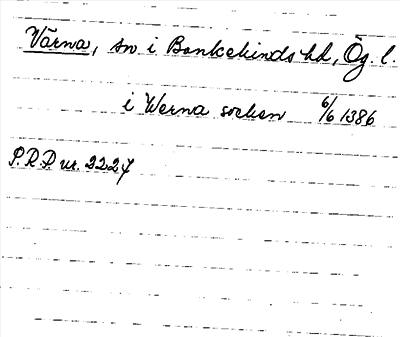 Värna, sn i Bankekinds hd, Ög. l.
i Werna socken 6/6 1386
P.R.P nr. 2227